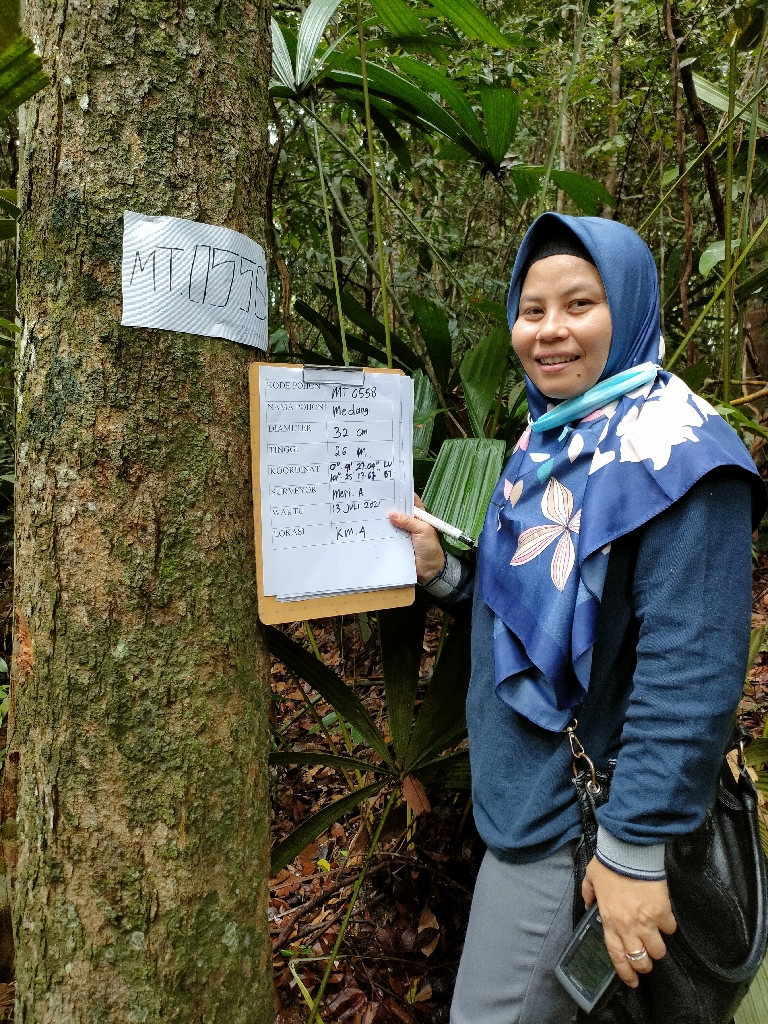 MT. 0558
KODE POHON MT 0558
NAMA POHON Medang
DIAMETER 32 cm
TINGGI 26 m
KOORDINAT
SURVEYOR Meri. A
WAKTU 13 JULI 2021
LOKASI KM. 4